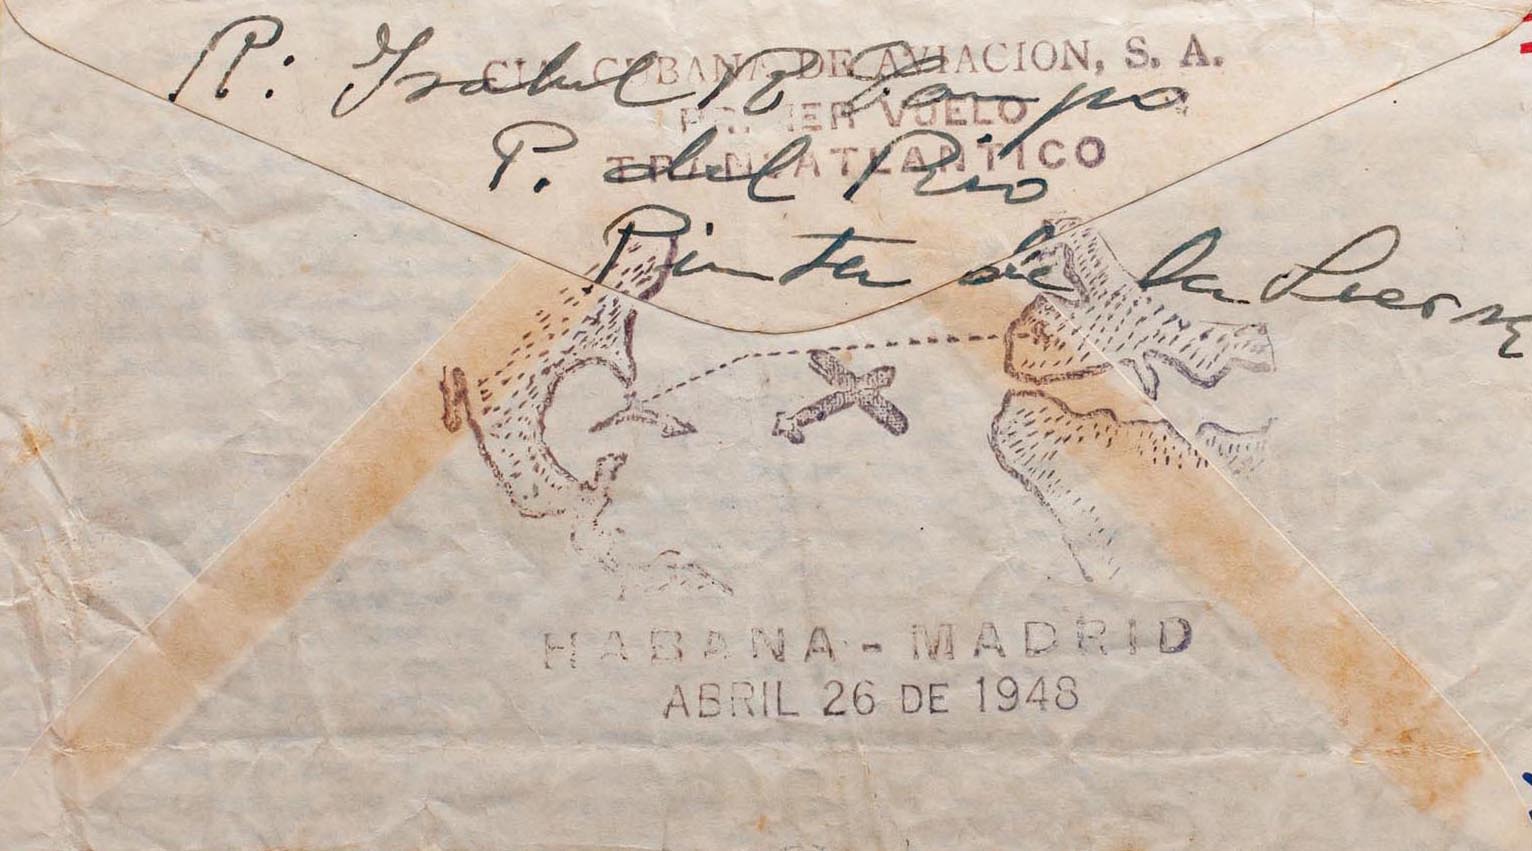 CIA. CUBANA DE AVIACION, S. A.
R: Isabel R
PRIMER VUELO
TRANSATLANTICO
P. del Rio
de la
HABANA - MADRID
ABRIL 26 DE 1948